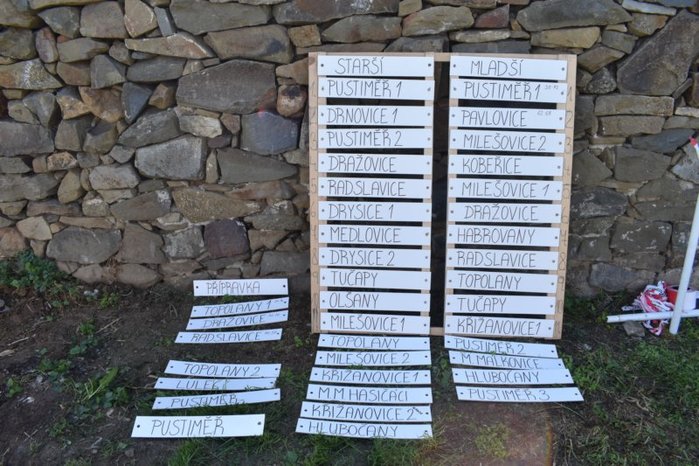 STARŠÍ
PUSTIMĚŘ 1
DRNOVICE
PUSTIMĚŘ 2
DRAŽOVICE
RADSLAVICE
DRYSICE 1
MEDLOVICE
DRYSICE 2
TUČAPY
OLŠANY
MILEŠOVICE 1
TOPOLANY
MILEŠOVICE 2
KŘIŽANOVICE 1
M.M HASIČÁCI
KŘIŽANOVICE 2
HLUBOČANY
MLADŠÍ
PUSTIMĚŘ 1
PAVLOVICE
MILEŠOVICE 2
KOBEŘICE
MILEŠOVICE 1
DRAŽOVICE
HABROVANY
RADSLAVICE
TOPOLANY
TUČAPY
KŘIŽANOVICE 1
PUSTIMĚŘ 2
M. MALKOVICE
HLUBOČANY
PUSTIMĚŘ 3
PŘÍPRAVKA
TOPOLANY 1
DRAŽOVICE
RADSLAVICE
TOPOLANY 2
LULEČ 1
PUSTIMĚŘ
PUSTIMĚŘ